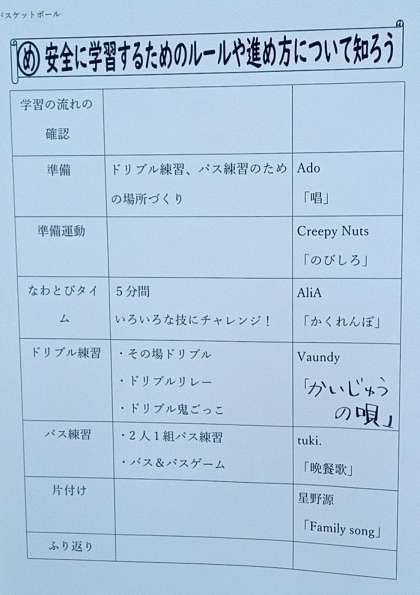 バスケットボール
め 安全に学習するためのルールや進め方について知ろう
学習の流れの
確認
準備
ドリブル練習、パス練習のため
の場所づくり
Ado
「唱」
準備運動
Creepy Nuts
「のびしろ」
なわとびタイ
ム
５分間
いろいろな技にチャレンジ！
AliA
「かくれんぼ」
ドリブル練習
・その場ドリブル
・ドリブルリレー
・ドリブル鬼ごっこ
Vaundy
「かいじゅう
の唄」
パス練習
・２人１組パス練習
・パス＆パスゲーム
tuki.
「晩餐歌」
片付け
星野源
「Family song」
ふり返り